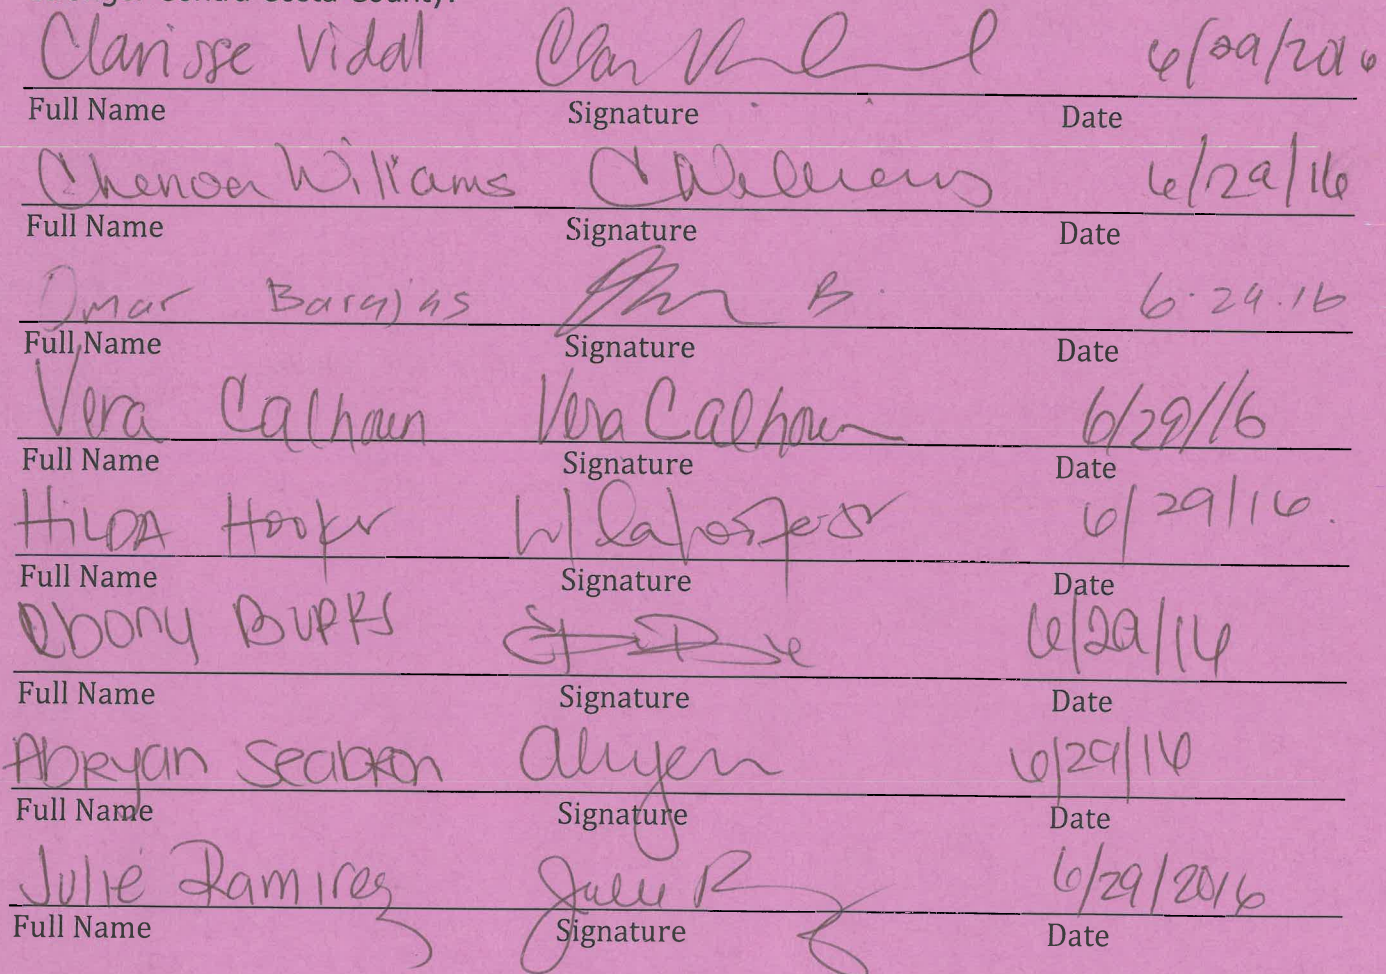 Contra Costa County.
Clarisse Vidal 6/29/2016
Full Name Signature Date
Chenoa Williams CWilliams 6/29/16
Full Name Signature Date
Omar Barajas B. 6.29.16
Full Name Signature Date
Vera Calhoun Vera Calhoun 6/29/16
Full Name Signature Date
HiLDA Hooker 6/29/16.
Full Name Signature Date
Ebony Burks 6/29/16
Full Name Signature Date
Abryan Seabron 6/29/16
Full Name Signature Date
Julie Ramirez Julie R 6/29/2016
Full Name Signature Date